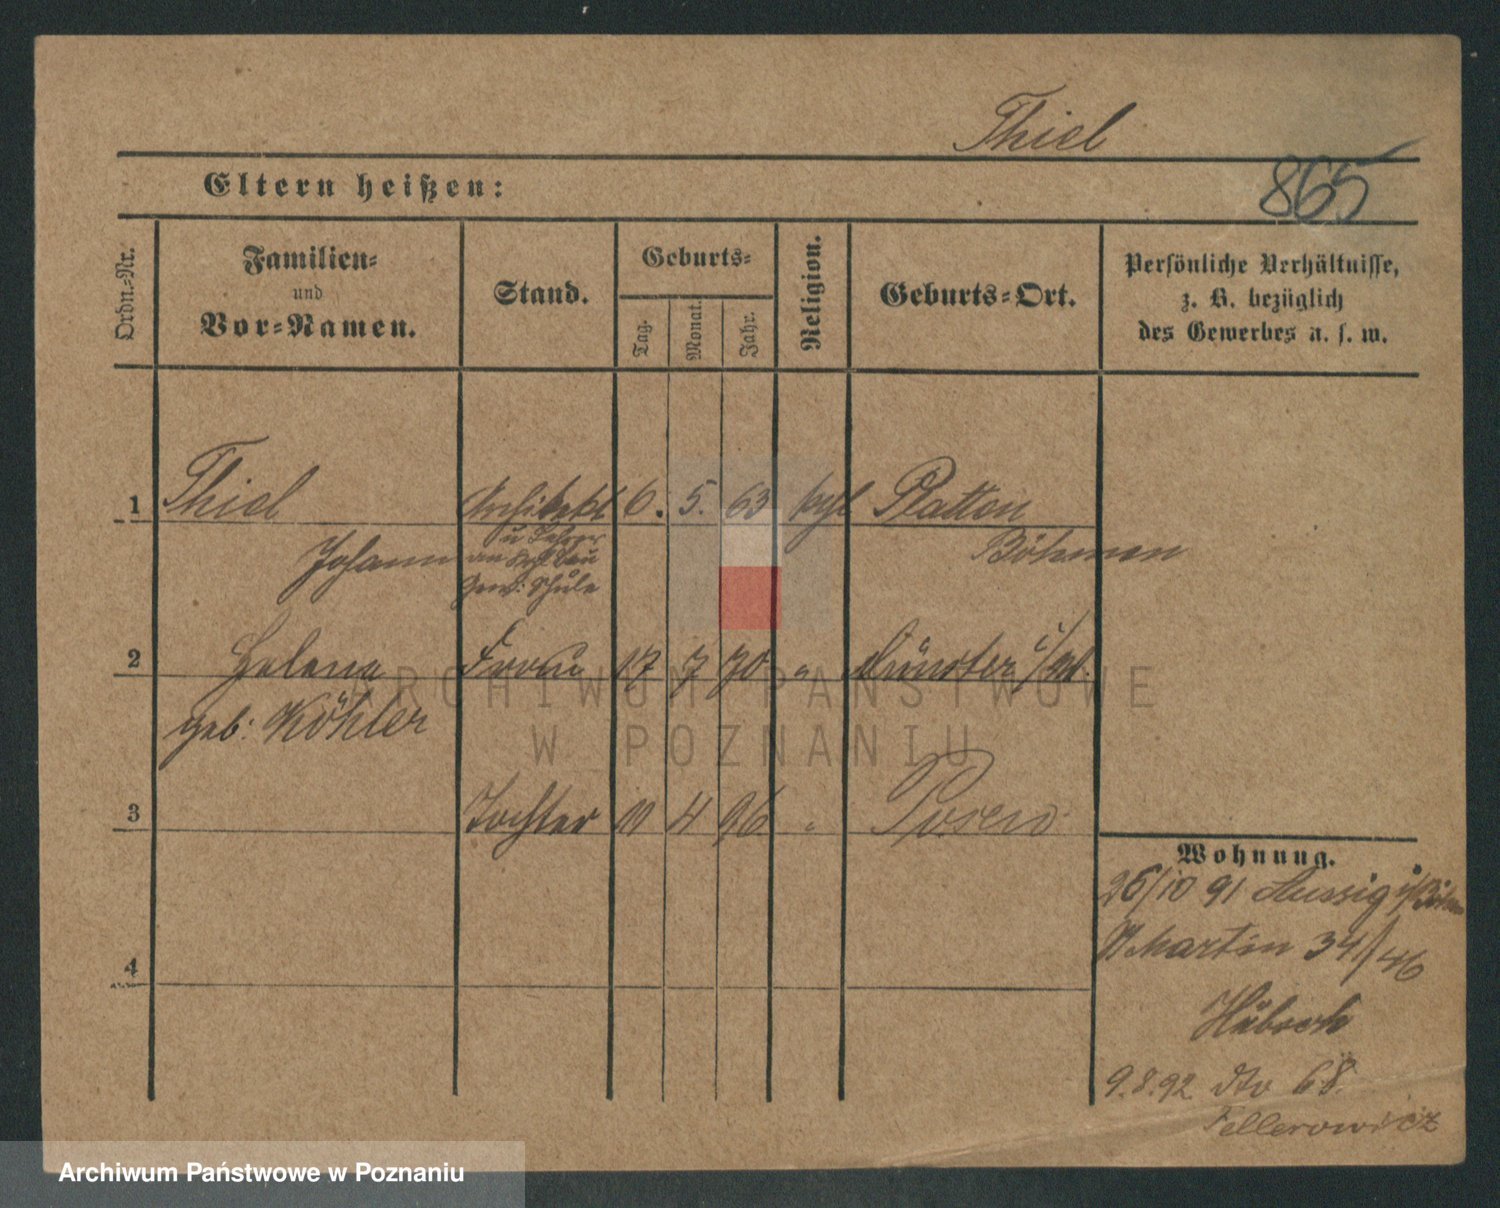 Thiel
865
Eltern heißen:
Ordn.-Nr.
Familien-
und
Vor-Namen.
Stand.
Geburts-
Tag.
Monat.
Jahr.
Religion.
Geburts-Ort.
Persönliche Verhältnisse,
z. B. bezüglich
des Gewerbes u. s. w.
1 Thiel Architekt 6. 5. 63 Platten
u Lehrer
Johann an Bau Böhmen
Gew: Schule
2 Helene Frau 17 7 70 " Münster i/W.
geb: Köhler
3 Tochter 11 4 96 " Posen
Wohnung.
26/10 91 Aussig
Martin 34/46
Hübsch
9.8.92 dto 68
Fellerowicz
4
ARCHIWUM PAŃSTWOWE
W POZNANIU
Archiwum Państwowe w Poznaniu